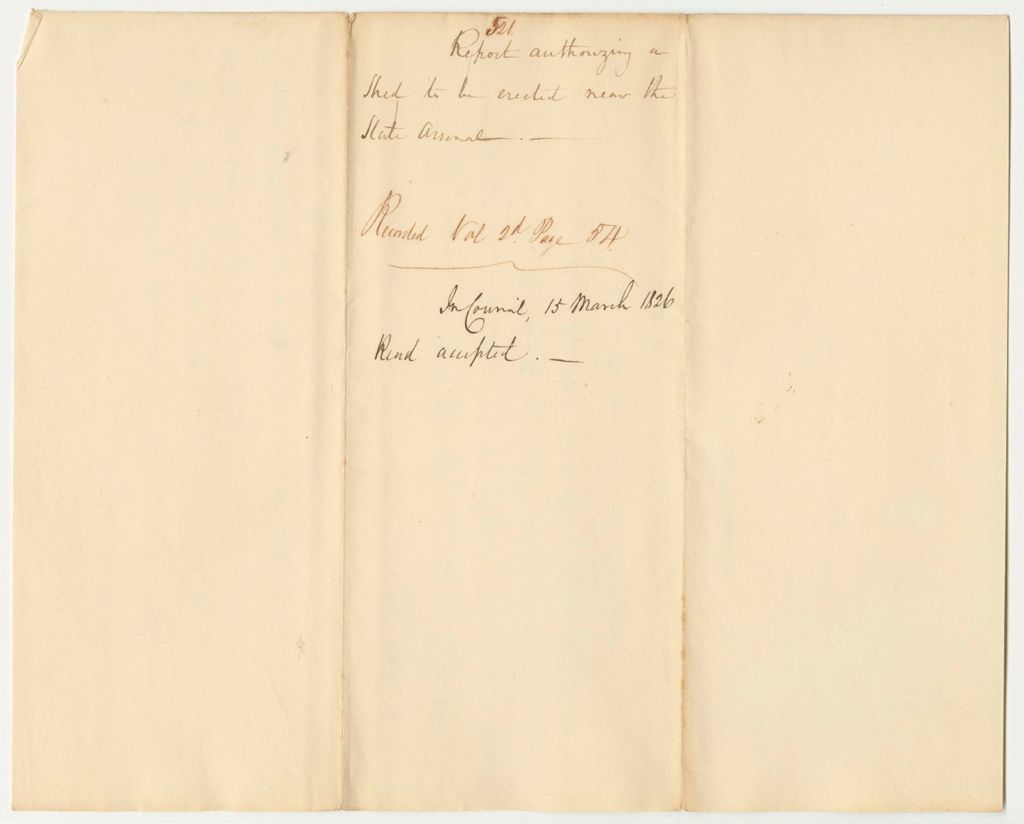 521.
Report authorizing a
Shed to be erected near the
State Arsenal. —
Recorded Vol 2d. Page 54
In Council, 15 March 1826
Read accepted. —